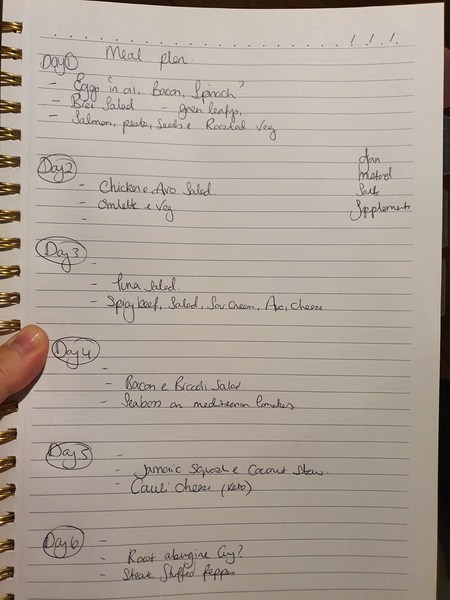 Meal plan
Day 1
- Eggs in oil, Bacon, Spinach
- Salad - green leafys,
- Salmon, pesto, Seeds & Roasted Veg
Day 2
- Chicken & Avo Salad
- Omlette & Veg
-
mustard
Supplements
Day 3
-
- Tuna Salad.
- Spicy beef, Salad, Sour Cream, Avo, Cheese
Day 4
-
- Bacon & Brocoli Salad
- Seabass on mediterranean tomatoes
Day 5
-
- Squash & Coconut Stew.
- Cauli Cheese (Keto)
Day 6
-
- Roast Curry?
- Steak Stuffed Peppers